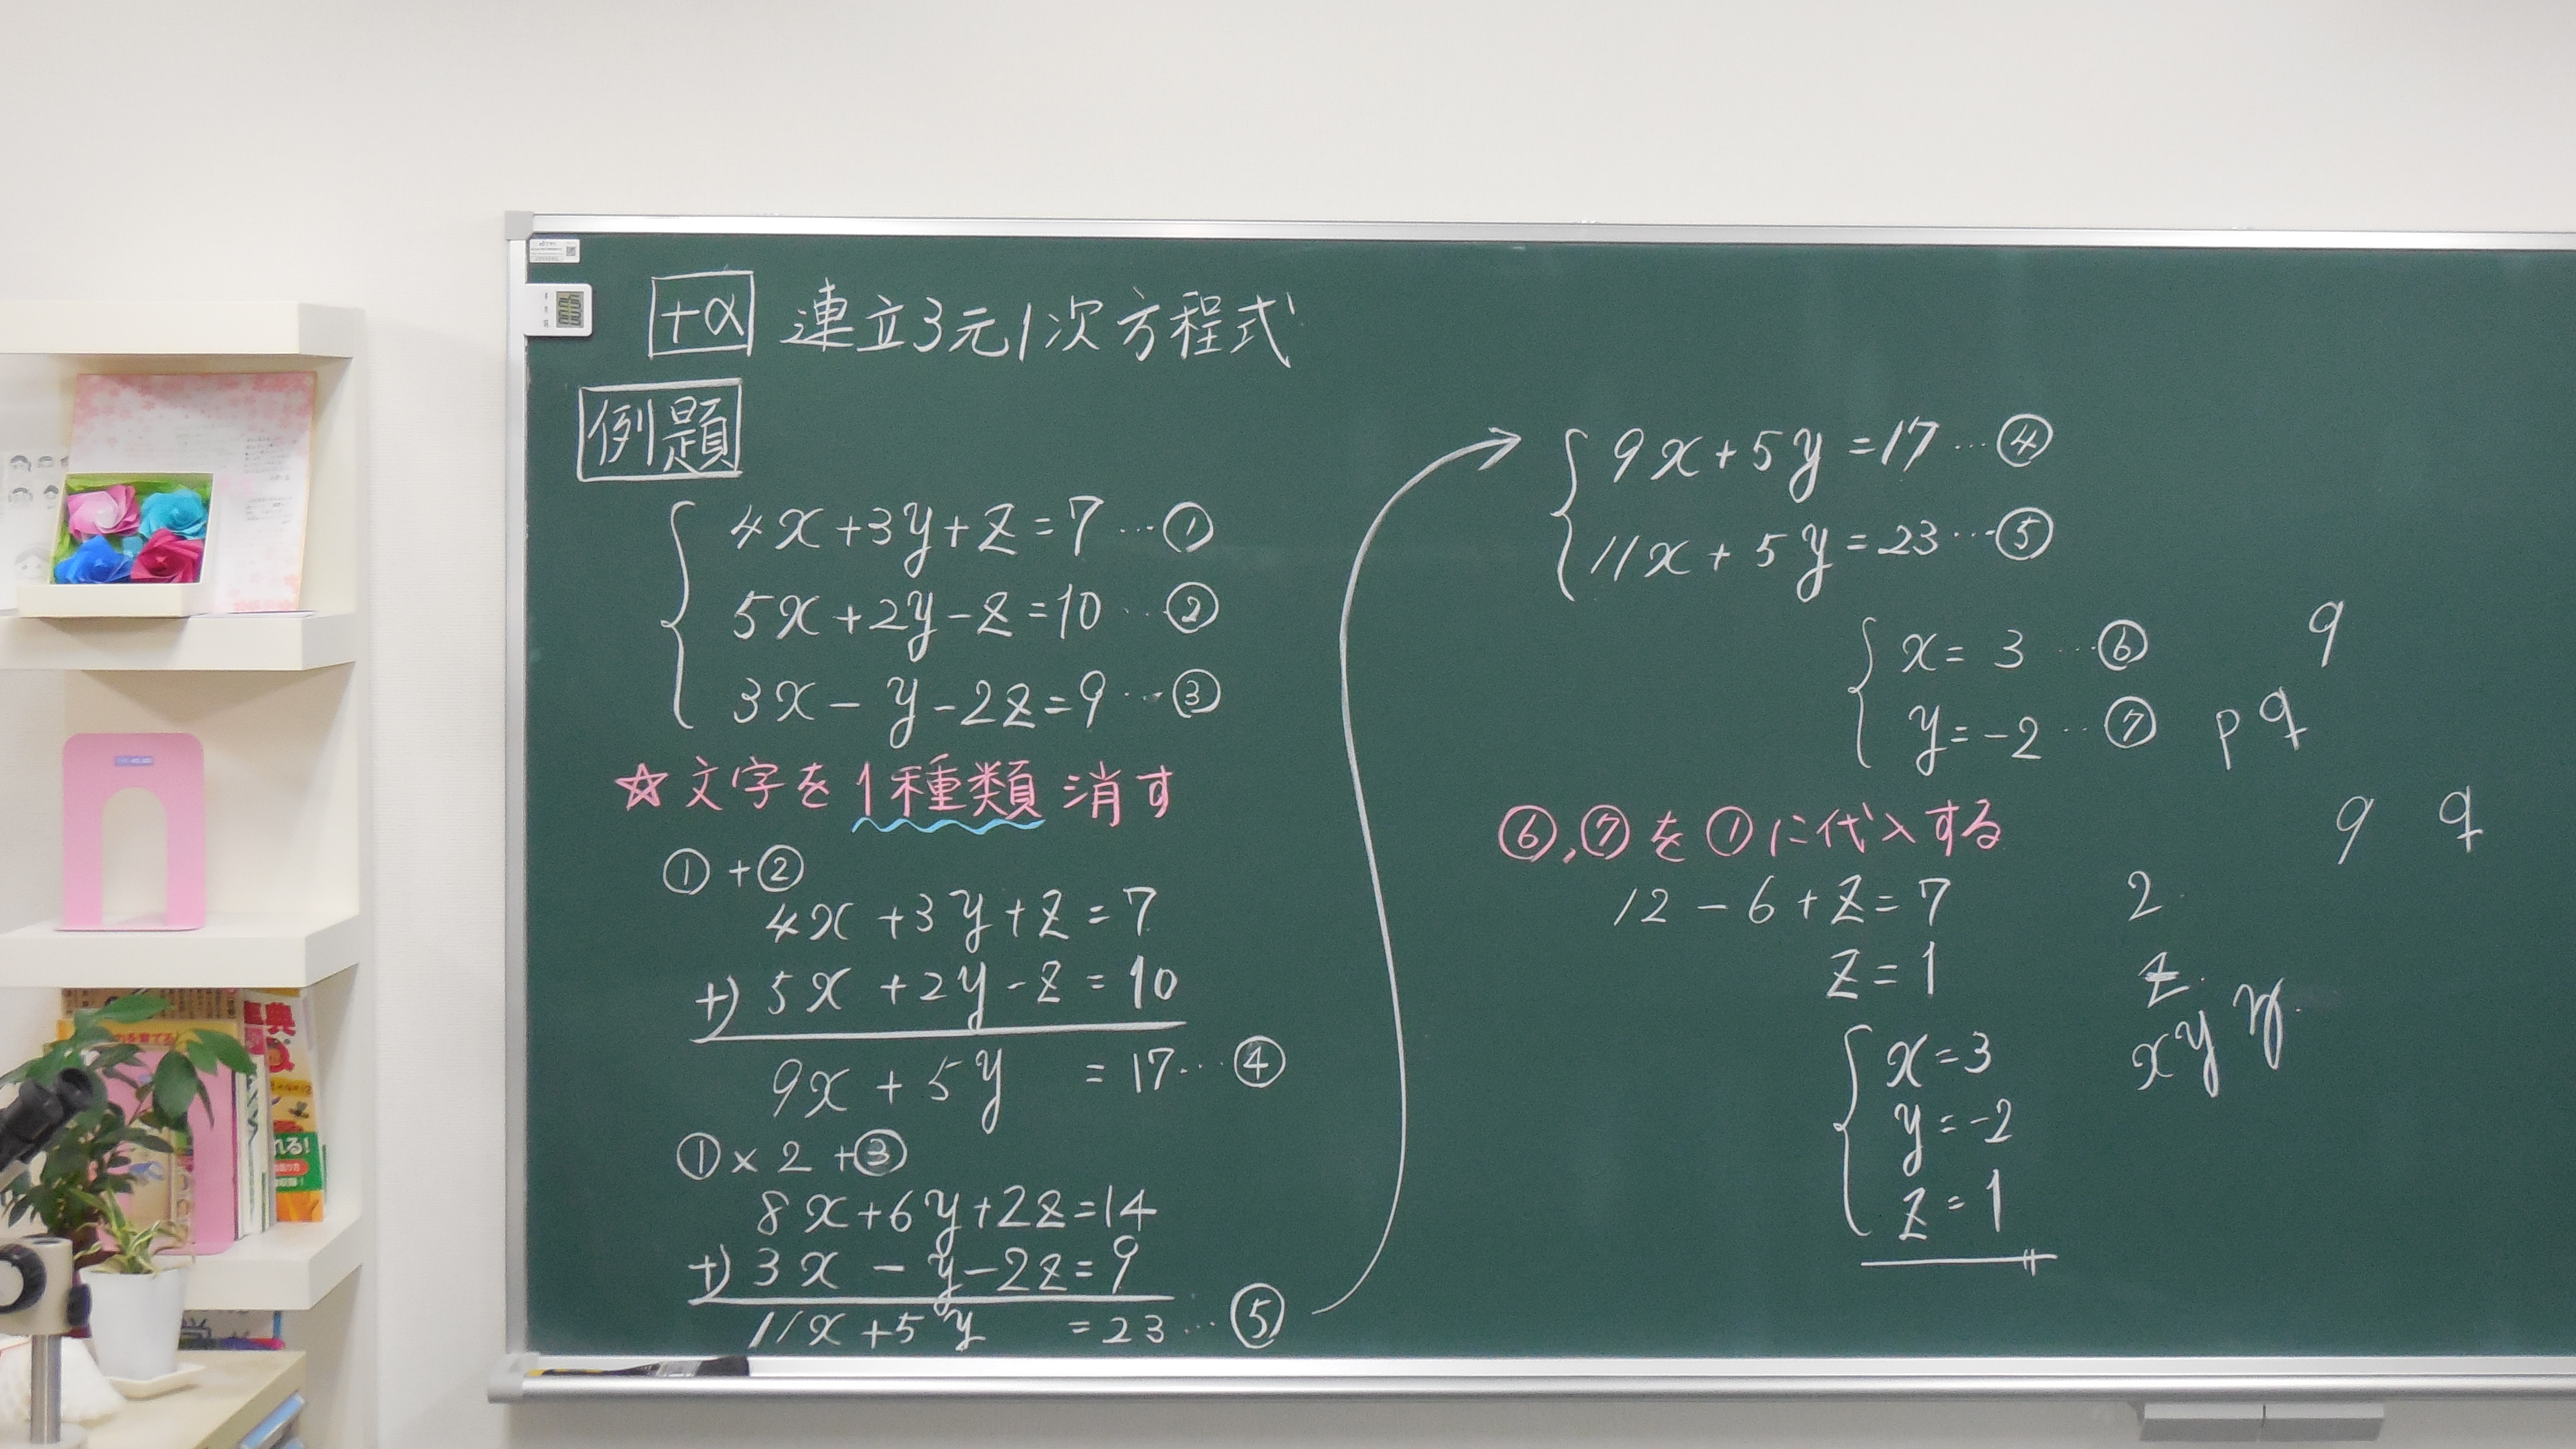 +α 連立3元1次方程式
例題
4x+3y+z=7…①
5x+2y-z=10…②
3x-y-2z=9…③
☆文字を1種類消す
①+②
4x+3y+z=7
+) 5x+2y-z=10
9x+5y=17…④
①×2+③
8x+6y+2z=14
+) 3x-y-2z=9
11x+5y=23…⑤
9x+5y=17…④
11x+5y=23…⑤
x=3…⑥
y=-2…⑦
⑥,⑦を①に代入する
12-6+z=7
z=1
x=3
y=-2
z=1
9
p q
9 q
2
z
x y y
典
れる!